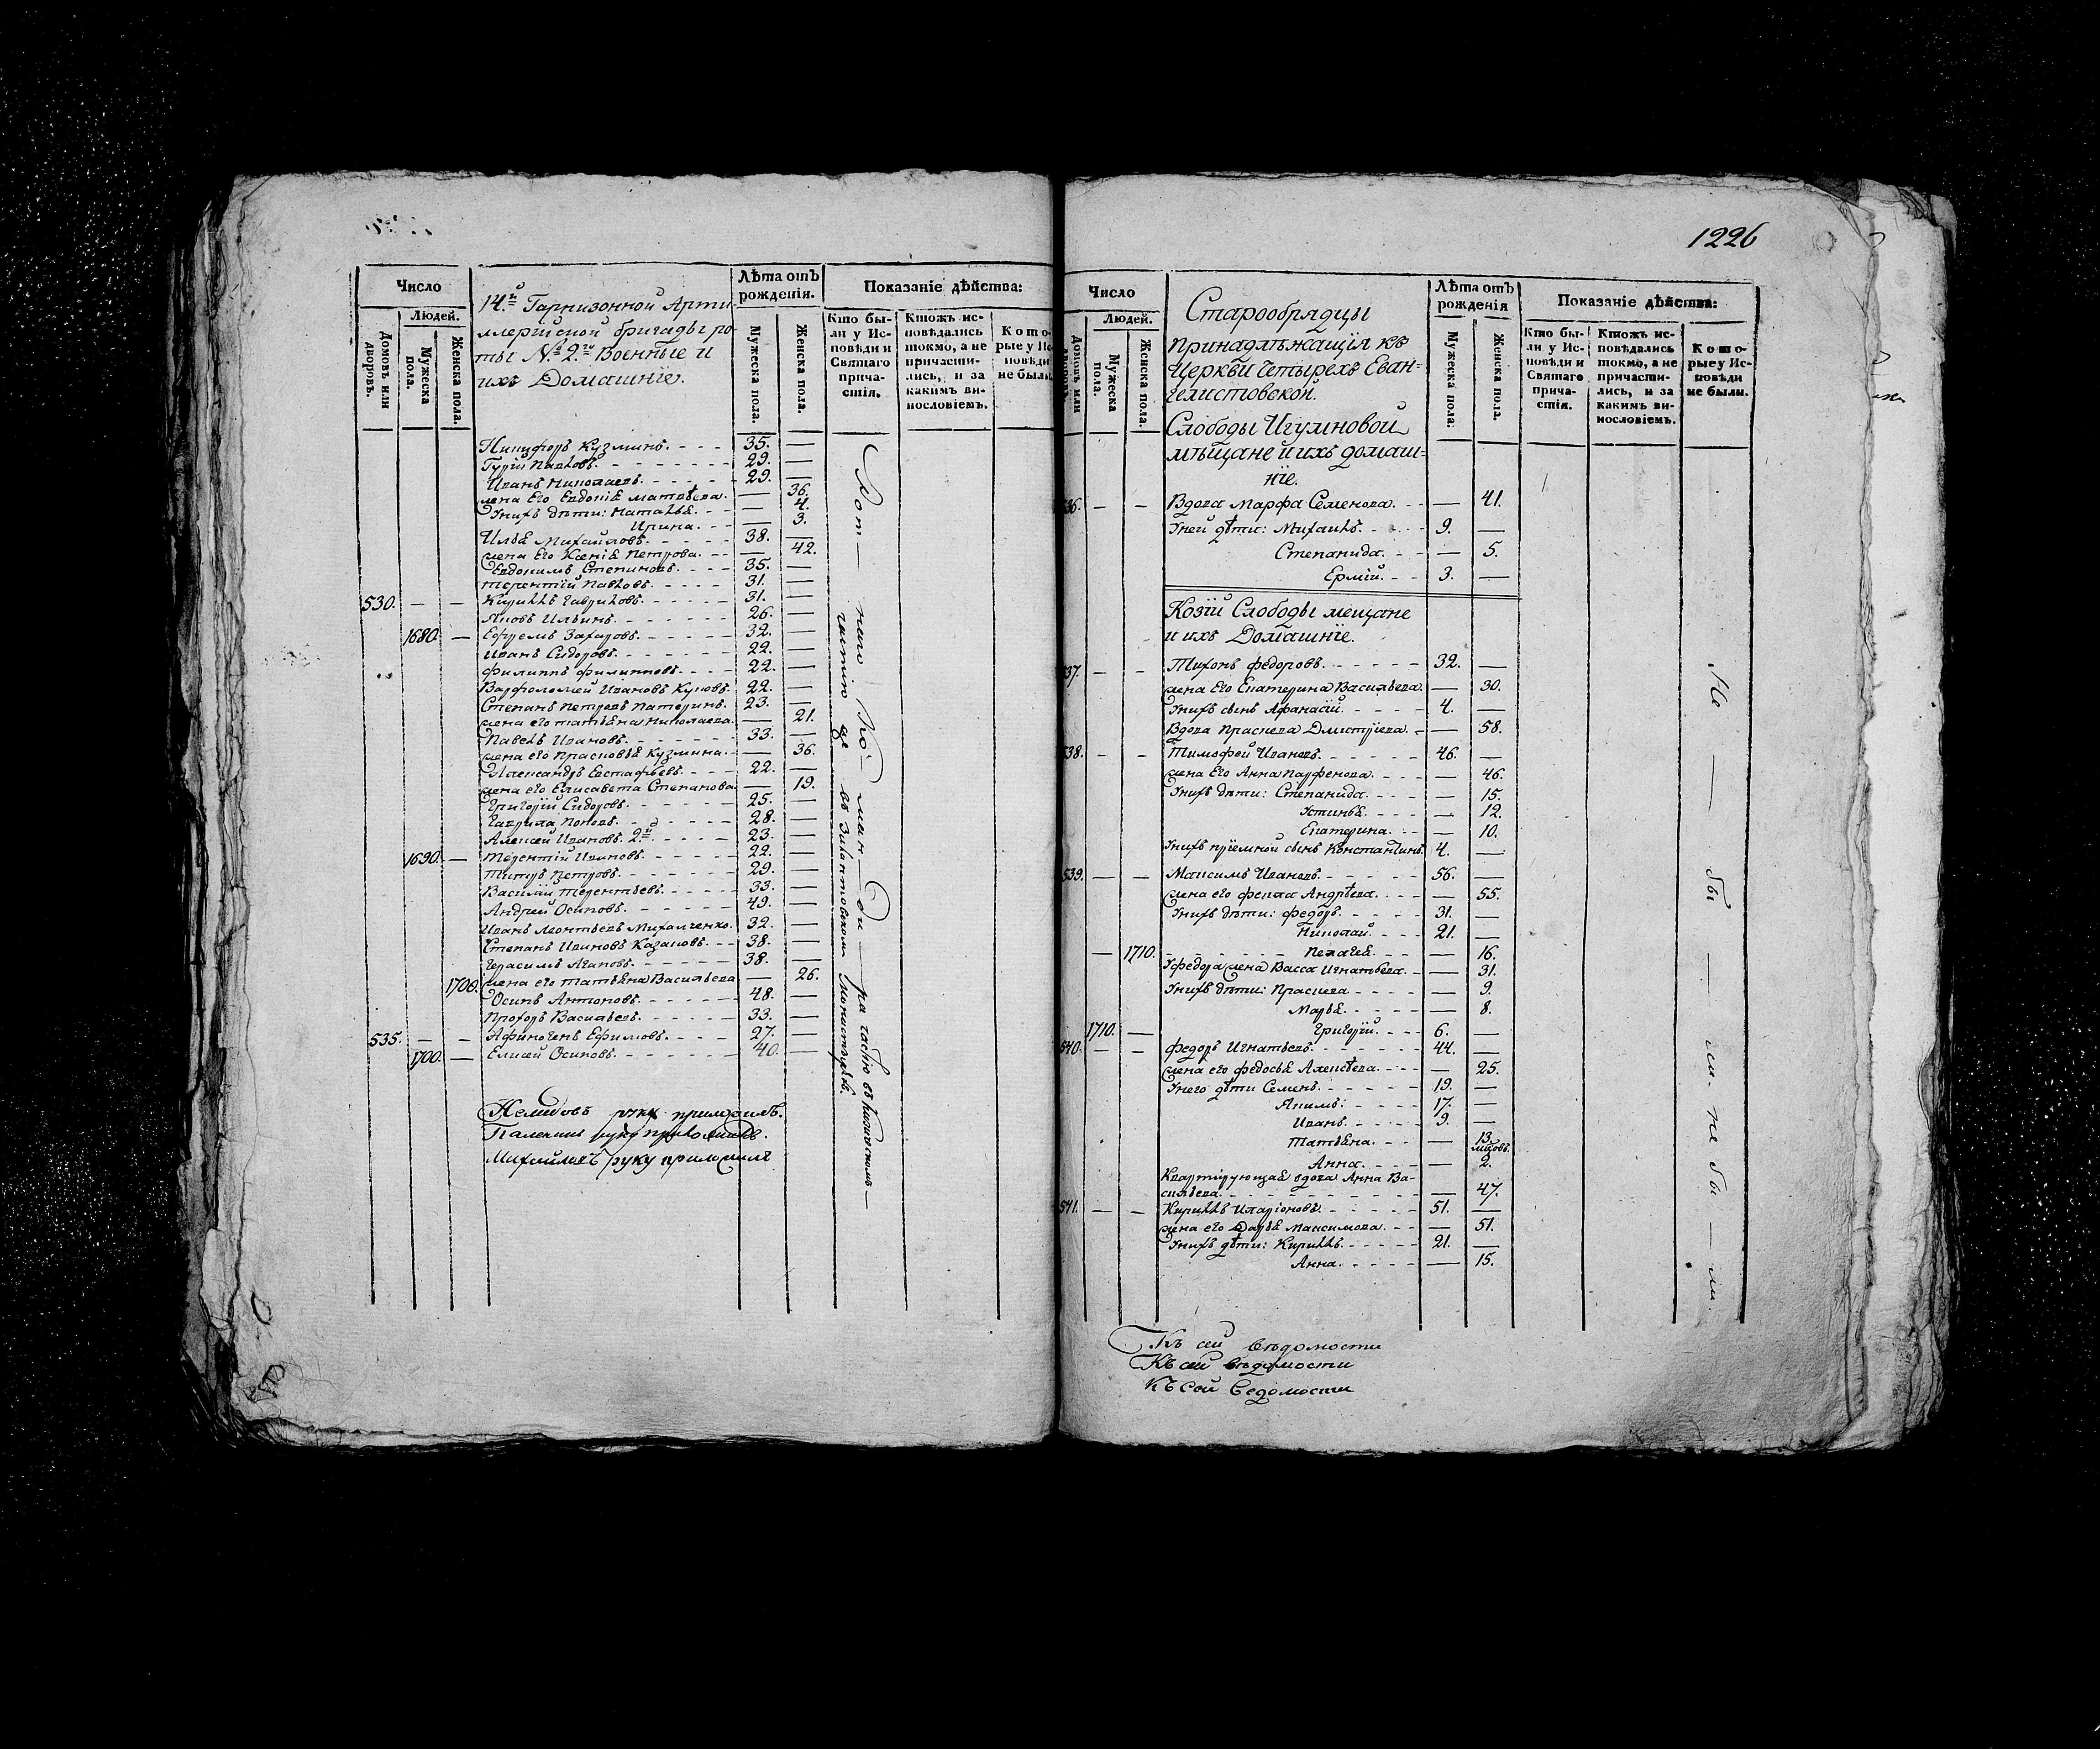 Число
Людей.
Домовъ или дворовъ.
Мужеска пола.
Женска пола.
14й Гарнизонной Арти-
ллерійской бригады ро-
ты №2го Военные и
ихъ Домашніе.
Лѣта отъ
рожденія.
Мужеска пола.
Женска пола.
Показаніе дѣйства:
Кто бы-
ли у Ис-
повѣди и
Святаго
прича-
стія.
Ктожъ ис-
повѣдались
токмо, а не
причасти-
лись, и за
какимъ ви-
нословіемъ.
Кото-
рые у Ис
повѣди
не были
Никифоръ Кузминъ. 35. —
Гурій Павловъ. 29. —
Иванъ Николаевъ. 29. —
жена Его Евдокія Матвѣева. — 36.
У нихъ дѣти: Наталья. — 4.
Ирина. — 3.
Илья Михайловъ. 38. —
жена Его Ксенія Петрова. — 42.
Евдокимъ Степановъ. 35. —
Терентій Павловъ. 31. —
530. — — Кириллъ Гавриловъ. 31. —
Яковъ Ильинъ. 26. —
1680. — Ефремъ Захаровъ. 32. —
Иванъ Сидоровъ. 22. —
Филиппъ Филипповъ. 22. —
Варфоломей Ивановъ Куковъ. 22. —
Степанъ Петровъ Патеринъ. 23. —
жена его Татьяна Николаева. — 21.
Павелъ Ивановъ. 33. —
жена его Прасковья Кузмина. — 36.
Александръ Евстафьевъ. 22. —
жена его Елисавета Степанова. — 19.
Григорій Сидоровъ. 25. —
Гаврила Поповъ. 28. —
Алексей Ивановъ 2й. 23. —
1690. — Терентій Ивановъ. 22. —
Титъ Петровъ. 29. —
Василій Терентьевъ. 33. —
Андрей Осиповъ. 49. —
Иванъ Леонтьевъ Михалченко. 32. —
Степанъ Ивановъ Казаковъ. 38. —
Герасимъ Агаповъ. 38. —
1700. жена его Татьяна Васильева — 26.
Осипъ Антоновъ. 48. —
Прохоръ Васильевъ. 33. —
535. — — Афиногенъ Ефимовъ. 27. —
1700. — Елисей Осиповъ. 40. —
руку приложилъ.
руку приложилъ.
Михайловъ руку приложилъ
1226
Число
Людей.
Домовъ или
Мужеска пола.
Женска пола.
Старообрядцы
принадлѣжащія къ
Церкви Четырехъ Еван-
гелистовской.
Слободы Игумновой
мѣщане и ихъ домаш-
ніе.
Лѣта отъ
рожденія
Мужеска пола.
Женска пола.
Показаніе дѣйства:
Кто бы-
ли у Ис-
повѣди и
Святаго
прича-
стія.
Ктожъ ис-
повѣдались
токмо, а не
причасти-
лись, и за
какимъ ви-
нословіемъ.
Кото-
рые у Ис-
повѣди
не были.
36. — — Вдова Марфа Семенова. — 41.
У ней дѣти: Михаилъ. 9. —
Степанида. — 5.
Ермій. 3. —
Козій Слободы мещане
и ихъ Домашніе.
37. — — Тихонъ Федоровъ. 32. —
жена Его Екатерина Васильева. — 30.
У нихъ сынъ Афанасій. 4. —
Вдова Праскева Дмитріева. — 58.
538. — — Тимофей Ивановъ. 46. —
жена Его Анна Парфенова. — 46.
У нихъ дѣти: Степанида. — 15.
Устинья. — 12.
Екатерина. — 10.
У нихъ пріемной сынъ Константинъ. 4. —
539. — — Максимъ Ивановъ. 56. —
жена его Фекла Андрѣева. — 55.
У нихъ дѣти: Федоръ. 31. —
Николай. 21. —
— 1710. Пелагея. — 16.
У Федора жена Васса Игнатьева. — 31.
У нихъ дѣти: Праскева — 9.
Марья. — 8.
1710. — Григорій. 6. —
540. — — Федоръ Игнатьевъ. 44. —
жена его Федосья Алексѣева. — 25.
У него дѣти Семенъ. 19. —
Акимъ. 17. —
Иванъ. 9. —
Татьяна. — 13.
Анна. — 2.
Квартирующая вдова Анна Ва-
сильева. — 47.
541. — — Кириллъ Иларіоновъ. 51. —
жена его Дарья Максимова. — 51.
У нихъ дѣти: Кириллъ. 21. —
Анна. — 15.
Не — бы — ли. не бы — ли.
Къ сей вѣдомости
Къ сей вѣдомости
Къ сей Ведомости